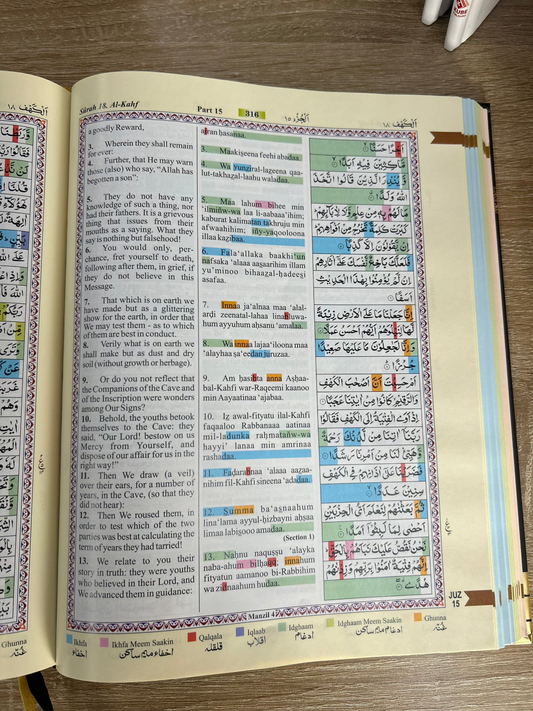 Sūrah 18. Al-Kahf
Part 15
316
اَلْجُزْء ١٥
اَلْكَهْف ١٨
a goodly Reward,
3. Wherein they shall remain
for ever:
4. Further, that He may warn
those (also) who say, “Allah has
begotten a son”:
5. They do not have any
knowledge of such a thing, nor
had their fathers. It is a grievous
thing that issues from their
mouths as a saying. What they
say is nothing but falsehood!
6. You would only, per-
chance, fret yourself to death,
following after them, in grief, if
they do not believe in this
Message.
7. That which is on earth we
have made but as a glittering
show for the earth, in order that
We may test them - as to which
of them are best in conduct.
8. Verily what is on earth we
shall make but as dust and dry
soil (without growth or herbage).
9. Or do you not reflect that
the Companions of the Cave and
of the Inscription were wonders
among Our Signs?
10. Behold, the youths betook
themselves to the Cave: they
said, “Our Lord! bestow on us
Mercy from Yourself, and
dispose of our affair for us in the
right way!”
11. Then We draw (a veil)
over their ears, for a number of
years, in the Cave, (so that they
did not hear):
12. Then We roused them, in
order to test which of the two
parties was best at calculating the
term of years they had tarried!
13. We relate to you their
story in truth: they were youths
who believed in their Lord, and
We advanced them in guidance:
ajran ḥasanaa.
3. Maakiṡeena feehi abadaa.
4. Wa yunẕiral-lazeena qaa-
lut-takhaẕal-laahu waladaa.
5. Maa lahum bihee min
‘ilmiñw-wa laa li-aabaaa’ihim;
kaburat kalimatan takhruju min
afwaahihim; iñy-yaqooloona
illaa kazibaa.
6. Fala‘allaka baakhi‘un
nafsaka ‘alaaa aaṡaarihim illam
yu’minoo bihaazal-ḥadeeṡi
asafaa.
7. Innaa ja‘alnaa maa ‘alal-
arḍi zeenatal-lahaa linabluwa-
hum ayyuhum aḥsanu ‘amalaa.
8. Wa innaa lajaa‘iloona maa
‘alayhaa ṣa‘eedan juruzaa.
9. Am ḥasibta anna Aṣḥaa-
bal-Kahfi war-Raqeemi kaanoo
min Aayaatinaa ‘ajabaa.
10. Iẕ awal-fityatu ilal-Kahfi
faqaaloo Rabbanaaa aatinaa
mil-ladunka raḥmatañw-wa
hayyi’ lanaa min amrinaa
rashadaa.
11. Faḍarabnaa ‘alaaa aaẕaa-
nihim fil-Kahfi sineena ‘adadaa.
12. Summa ba‘aṡnaahum
lina‘lama ayyul-ḥizbayni aḥṣaa
limaa labiṡooo amadaa.
(Section 1)
13. Naḥnu naquṣṣu ‘alayka
naba-ahum bilḥaqq; innahum
fityatun aamanoo bi-Rabbihim
wa zidnaahum hudaa.
اَجْرًا حَسَنًا
مَّاكِثِيْنَ فِيْهِ اَبَدًا
وَّيُنْذِرَ الَّذِيْنَ قَالُوا اتَّخَذَ
اللّٰهُ وَلَدًا
مَا لَهُمْ بِهٖ مِنْ عِلْمٍ وَّلَا لِاٰبَآىِٕهِمْ
كَبُرَتْ كَلِمَةً تَخْرُجُ مِنْ اَفْوَاهِهِمْ
اِنْ يَّقُوْلُوْنَ اِلَّا كَذِبًا
فَلَعَلَّكَ بَاخِعٌ نَّفْسَكَ عَلٰٓى اٰثَارِهِمْ
اِنْ لَّمْ يُؤْمِنُوْا بِهٰذَا الْحَدِيْثِ
اَسَفًا
اِنَّا جَعَلْنَا مَا عَلَى الْاَرْضِ زِيْنَةً
لَّهَا لِنَبْلُوَهُمْ اَيُّهُمْ اَحْسَنُ عَمَلًا
وَاِنَّا لَجٰعِلُوْنَ مَا عَلَيْهَا صَعِيْدًا
جُرُزًا
اَمْ حَسِبْتَ اَنَّ اَصْحٰبَ الْكَهْفِ
وَالرَّقِيْمِ كَانُوْا مِنْ اٰيٰتِنَا عَجَبًا
اِذْ اَوَى الْفِتْيَةُ اِلَى الْكَهْفِ فَقَالُوْا
رَبَّنَآ اٰتِنَا مِنْ لَّدُنْكَ رَحْمَةً
وَّهَيِّئْ لَنَا مِنْ اَمْرِنَا رَشَدًا
فَضَرَبْنَا عَلٰٓى اٰذَانِهِمْ فِى الْكَهْفِ
سِنِيْنَ عَدَدًا
ثُمَّ بَعَثْنٰهُمْ لِنَعْلَمَ اَىُّ الْحِزْبَيْنِ
اَحْصٰى لِمَا لَبِثُوْٓا اَمَدًا
نَحْنُ نَقُصُّ عَلَيْكَ نَبَاَهُمْ بِالْحَقِّ
اِنَّهُمْ فِتْيَةٌ اٰمَنُوْا بِرَبِّهِمْ وَزِدْنٰهُمْ
هُدًى
Manzil 4
JUZ
15
Ikhfa
اخفاء
Ikhfa Meem Saakin
اخفاء میم ساکن
Qalqala
قلقله
Iqlaab
اقلاب
Idghaam
ادغام
Idghaam Meem Saakin
ادغام میم ساکن
Ghunna
غنّه
Ghunna
غنّه